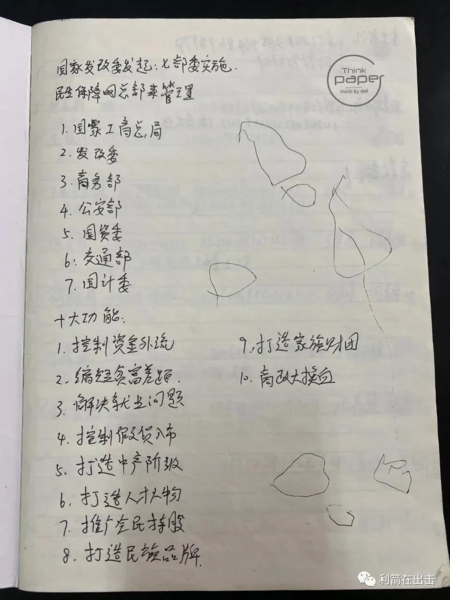 Think
paper
made by deli
国家发改委发起：七部委实施.
民生保障网总部来管理
1. 国家工商总局
2. 发改委
3. 商务部
4. 公安部
5. 国资委
6. 交通部
7. 国计委
十大功能.
1. 控制资金外流
2. 缩短贫富差距.
3. 解决就业问题
4. 控制假货入市
5. 打造中产阶级
6. 打造人才人物
7. 推广全民持股
8. 打造民族品牌.
9. 打造家族财团
10. 高改大换血
利箭在出击